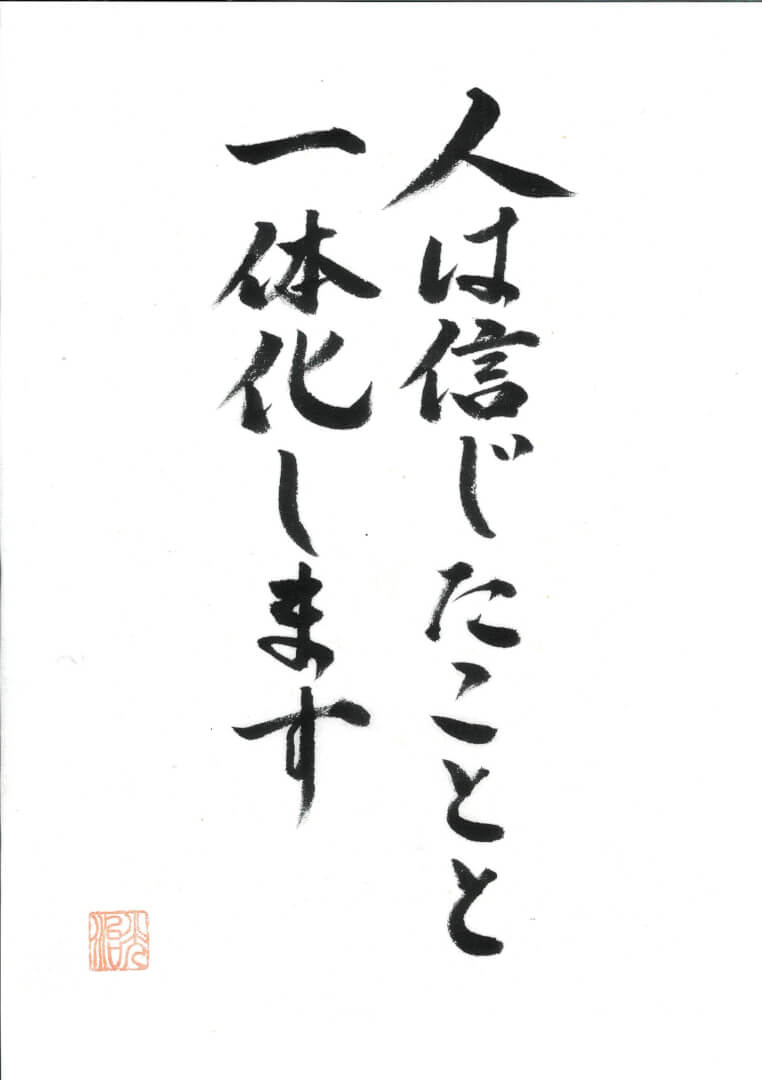 人は信じたことと
一体化します